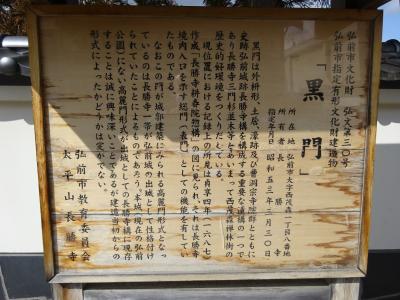 弘前市文化財　弘文第三〇号
弘前市指定有形文化財建造物
「黒門」
所在地　弘前市大字西茂森一丁目八番地
所有者　長勝寺
指定年月日　昭和五三年三月三〇日
黒門は外枡形、土居、濠跡及び曹洞宗寺院群とともに
史跡弘前城跡長勝寺構を構成する重要な遺構の一つで
あり長勝寺三門杉並木等とあいまって西茂森禅林街の
歴史的好環境をつくりだしている。
現位置における記録上の所見は貞享四年（一六八七）
作成「長勝寺耕春院惣構」の図に見られそれは長勝寺
境内入口を示す総門（表門）としての機能を有してい
たものである。
なおこの門が城郭建築にみられる高麗門形式となっ
ているのは長勝寺一帯が弘前城の出城として性格付け
られていたことによるものであろう。本城（現在の弘前
公園）にない高麗門形式が出城としての長勝寺構に現存
することは誠に興味深いことであるが建造当初からの
形式によったかどうかは定かでない。
弘前市教育委員会
太平山長勝寺